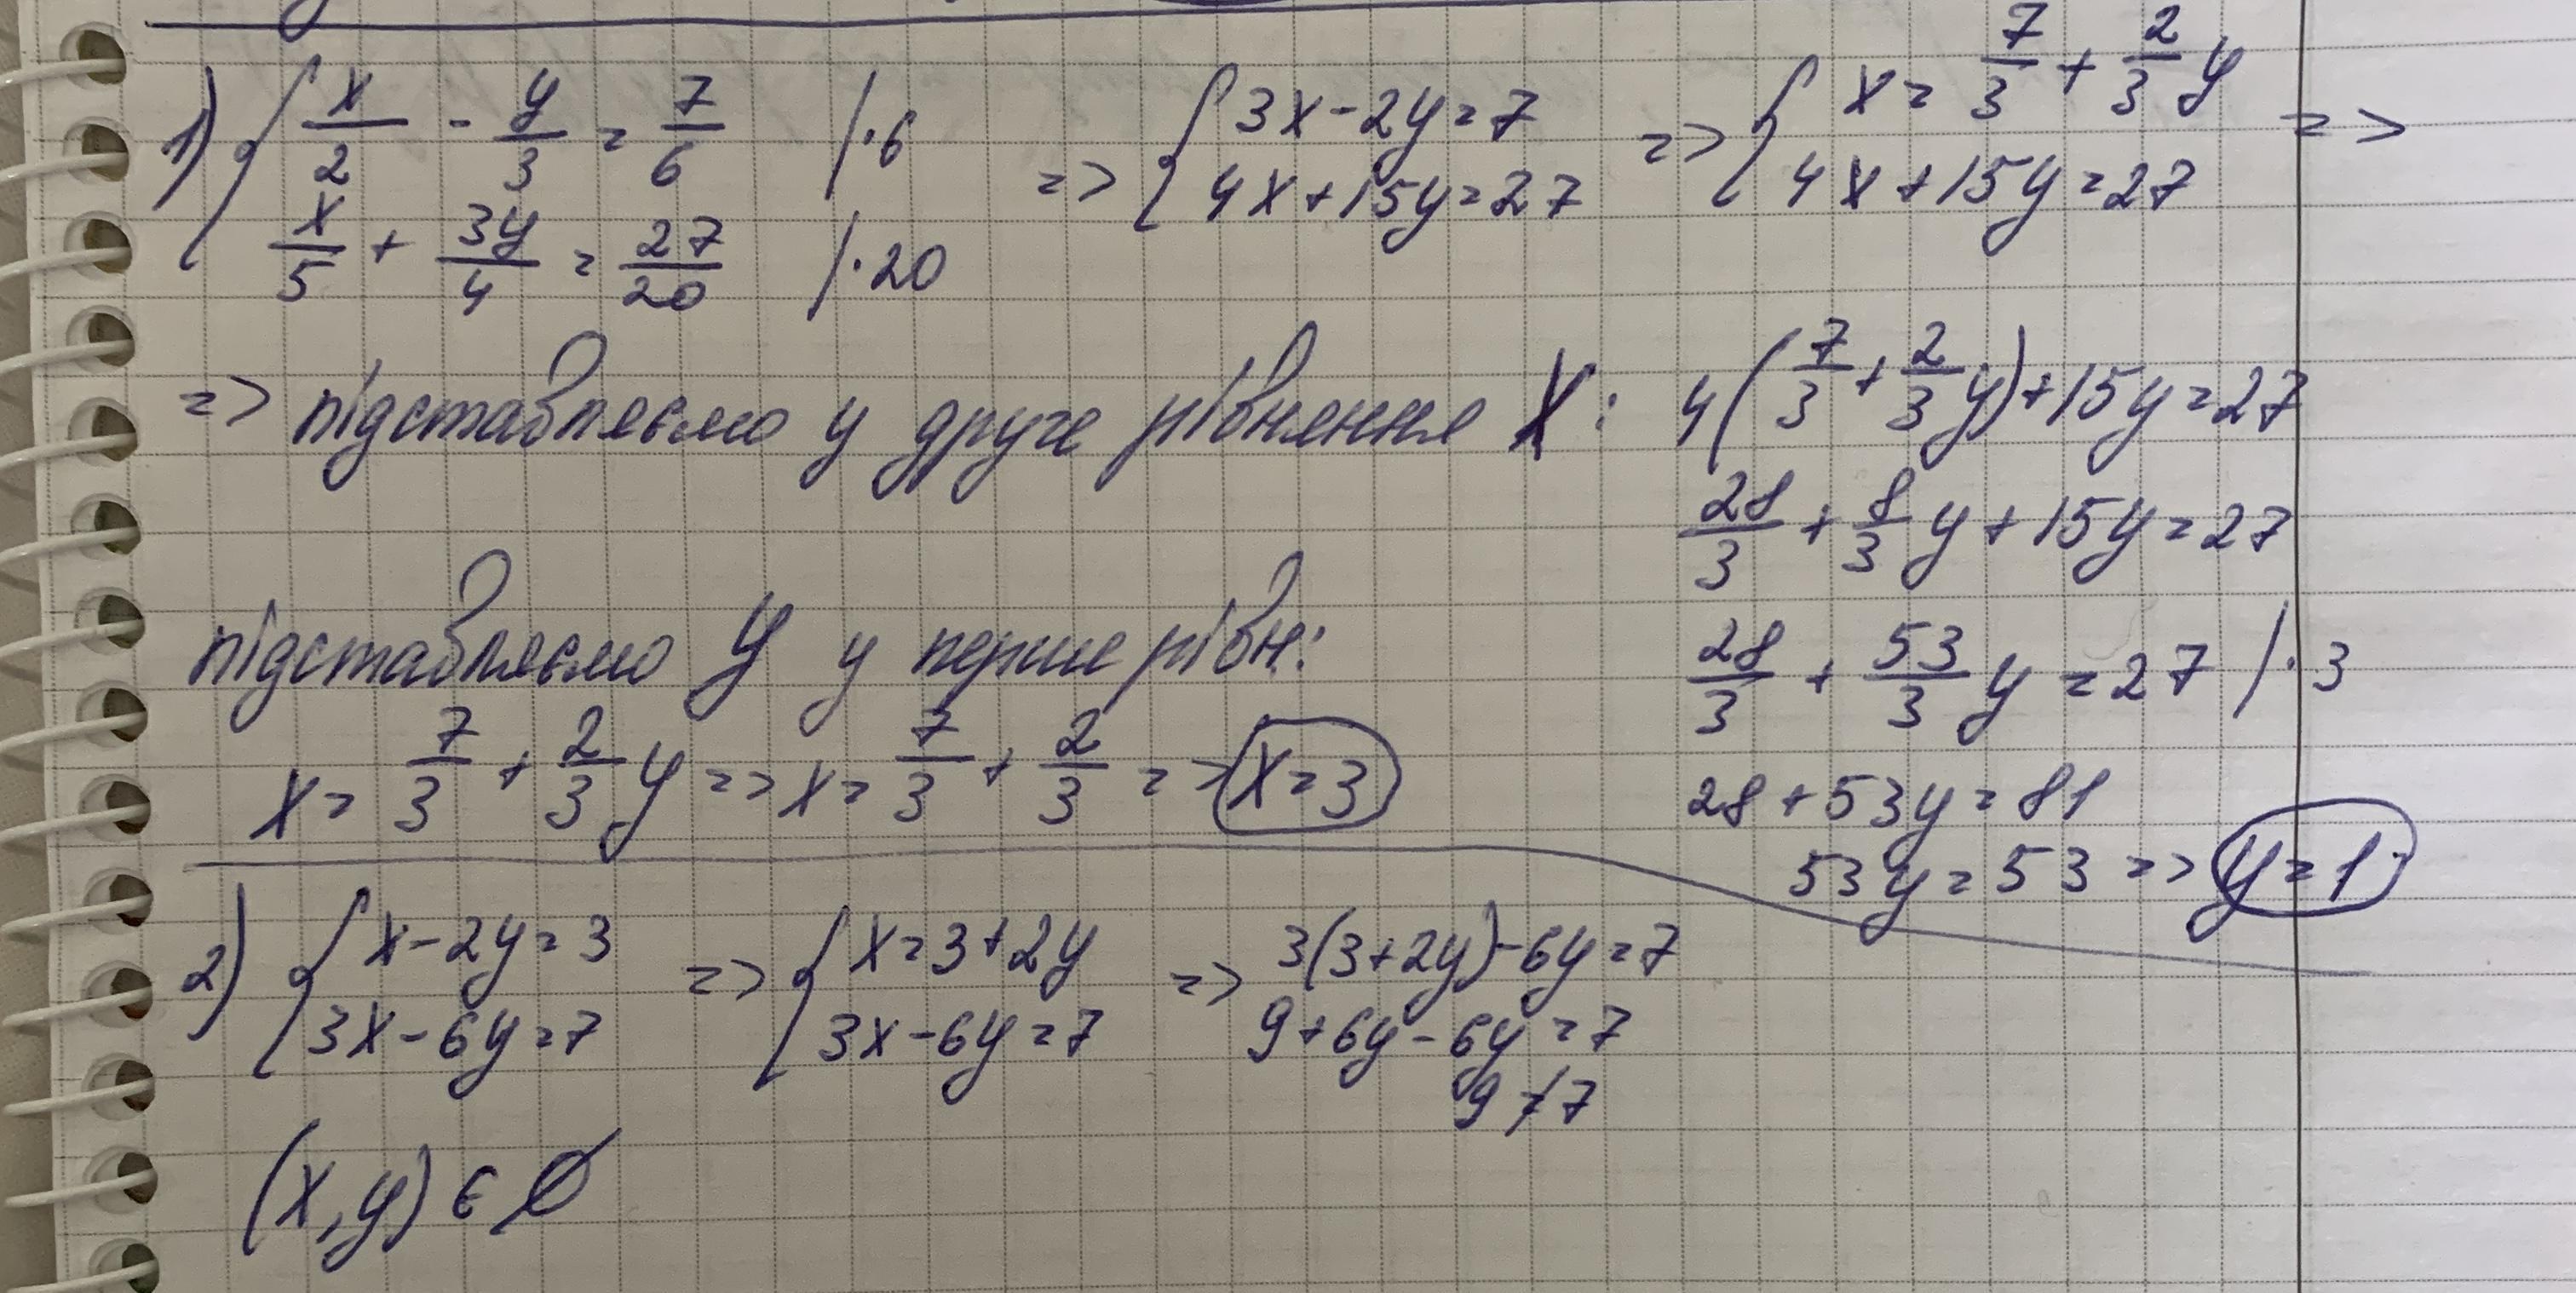 1) { x/2 - y/3 = 7/6 |·6 => { 3x-2y=7 => { x = 7/3 + 2/3 y =>
x/5 + 3y/4 = 27/20 |·20 4x+15y=27 4x+15y=27
=> підставляємо у друге рівняння x: 4(7/3 + 2/3 y)+15y=27
28/3 + 8/3 y + 15y = 27
підставляємо y у перше рівн: 28/3 + 53/3 y = 27 |·3
x = 7/3 + 2/3 y => x = 7/3 + 2/3 => x=3 28+53y=81
53y=53 => y=1
2) { x-2y=3 => { x=3+2y => 3(3+2y)-6y=7
3x-6y=7 3x-6y=7 9+6y-6y=7
9≠7
(x,y) ∈ ∅